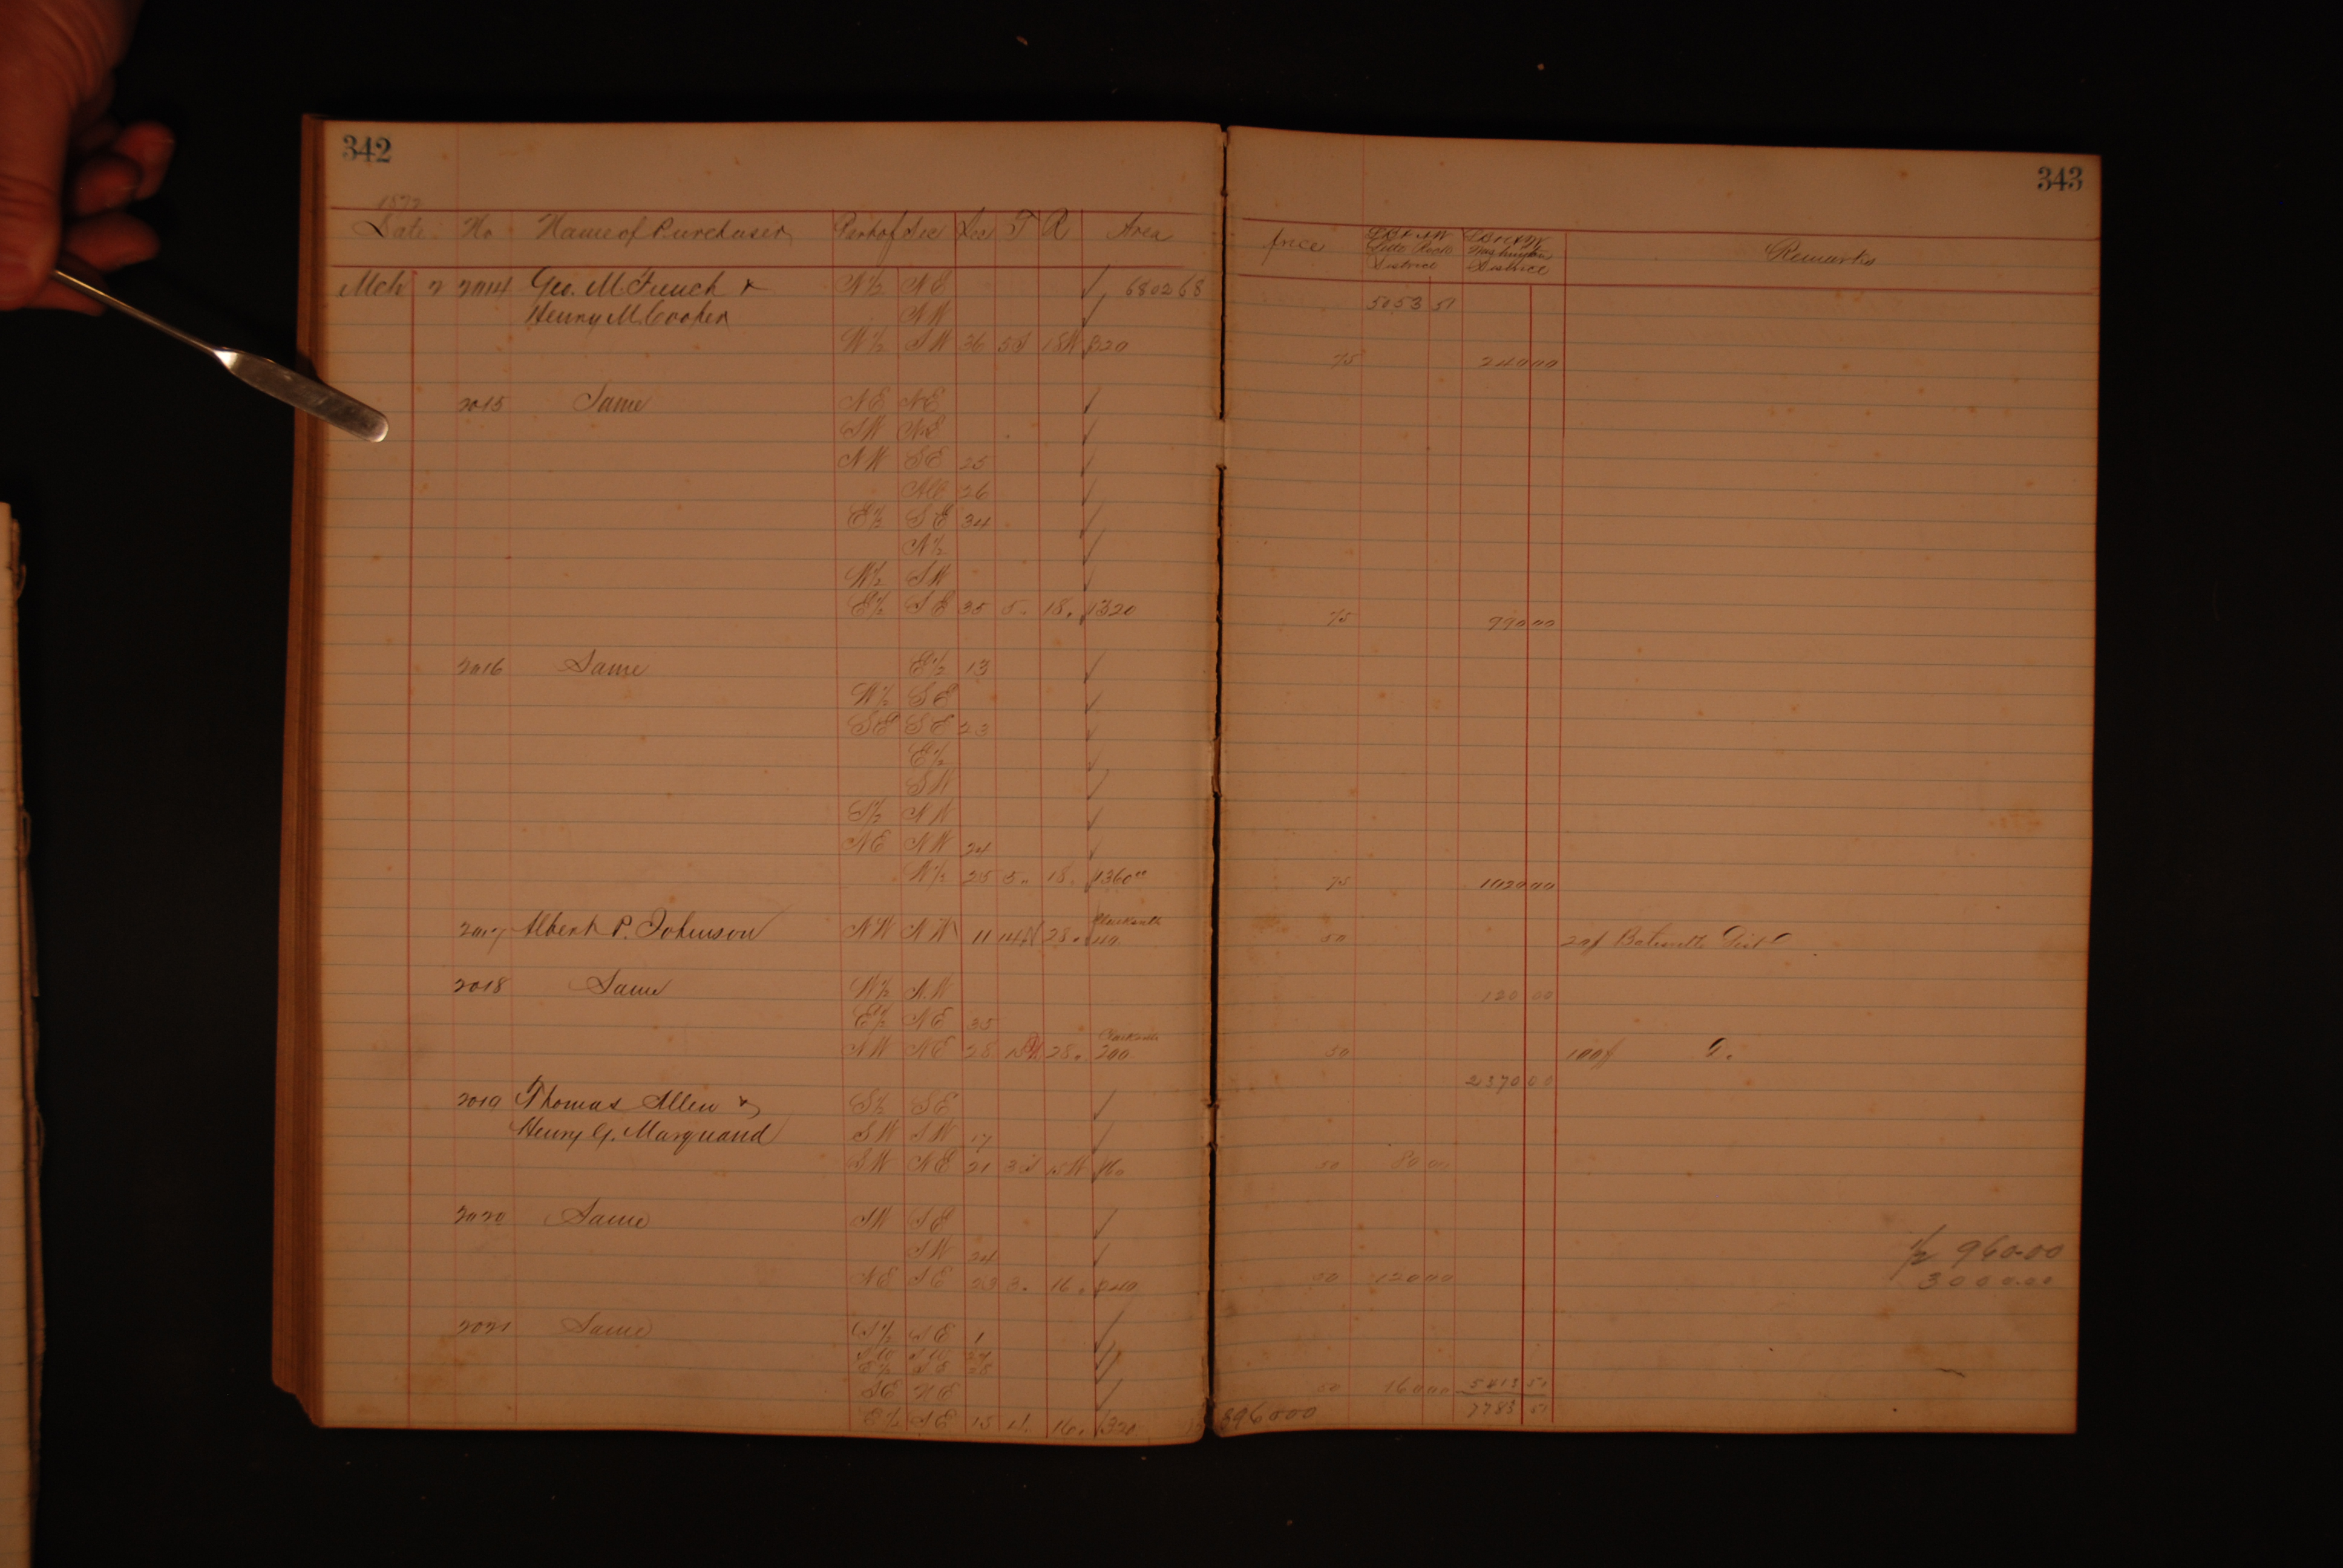 342
343
1872
Date No Name of Purchaser Part of Sec Sec T R Area Price Little Rock District Washington District Remarks
Mch 2 2014 Geo. M. French & N½ NE ✓ 680268 5053 51
Henry M. Cooper NW ✓
W½ SW 36 5S 18W 320 75 240 00
2015 Same NE NE ✓
SW NE ✓
NW SE 25 ✓
All 26 ✓
E½ SE 34 ✓
N½ ✓
W½ SW ✓
E½ SE 35 5 " 18 " 1320 75 990 00
2016 Same E½ 13 ✓
W½ SE ✓
SE SE 23 ✓
E½ ✓
SW ✓
S½ NW ✓
NE NW 24 ✓
N½ 25 5 " 18 " 1360 00 75 1020 00
2017 Albert P. Johnson NW NW 11 14N 28 " 40 50 20 Dist
2018 Same W½ NW 120 00
E½ NE 35
NW NE 28 15N 28 " 200 50 100
2370 00
2019 Thomas Allen & S½ SE ✓
Henry G. Marquand SW SW 17 ✓
SW NE 21 3S 15W 160 50 80 00
2020 Same SW SE ✓
SW 24 ✓
NE SE 23 3 " 16 " 240 50 120 00
½ 960.00
3000.00
2021 Same S½ SE 1 ✓
SW SW 27 ✓
E½ SE 28 ✓
SE NE ✓ 50 160 00 5413 51
E½ SE 15 4 " 16 " 320 3960.00 7783 51